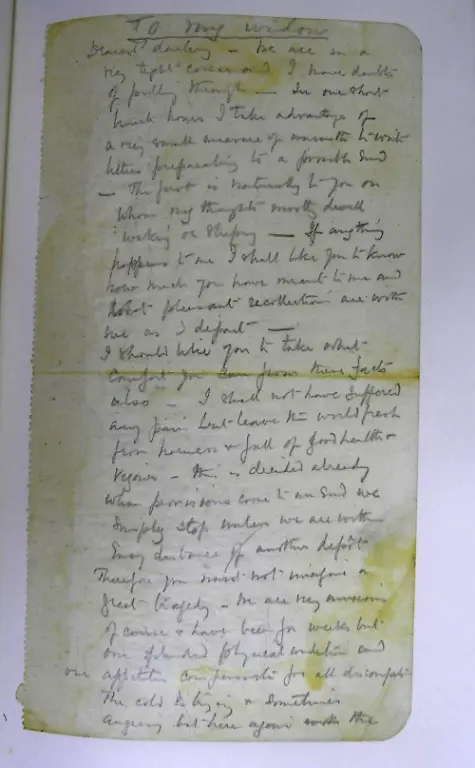 To my widow
Dearest darling - we are in a
very tight corner and I have doubts
of pulling through - In our short
lunch hours I take advantage of
a very small measure of warmth to write
letters preparatory to a possible end
- The first is naturally to you on
whom my thoughts mostly dwell
waking or sleeping - If anything
happens to me I shall like you to know
how much you have meant to me and
that pleasant recollections are with
me as I depart -
I should like you to take what
comfort you can from these facts
also - I shall not have suffered
any pain but leave the world fresh
from harness & full of good health &
vigour - this is decided already
when provisions come to an end we
simply stop unless we are within
easy distance of another depot
Therefore you must not imagine a
great tragedy - we are very anxious
of course & have been for weeks but
our splendid physical condition and
our appetites compensate for all discomfort
The cold is biting & sometimes
angering but here again the